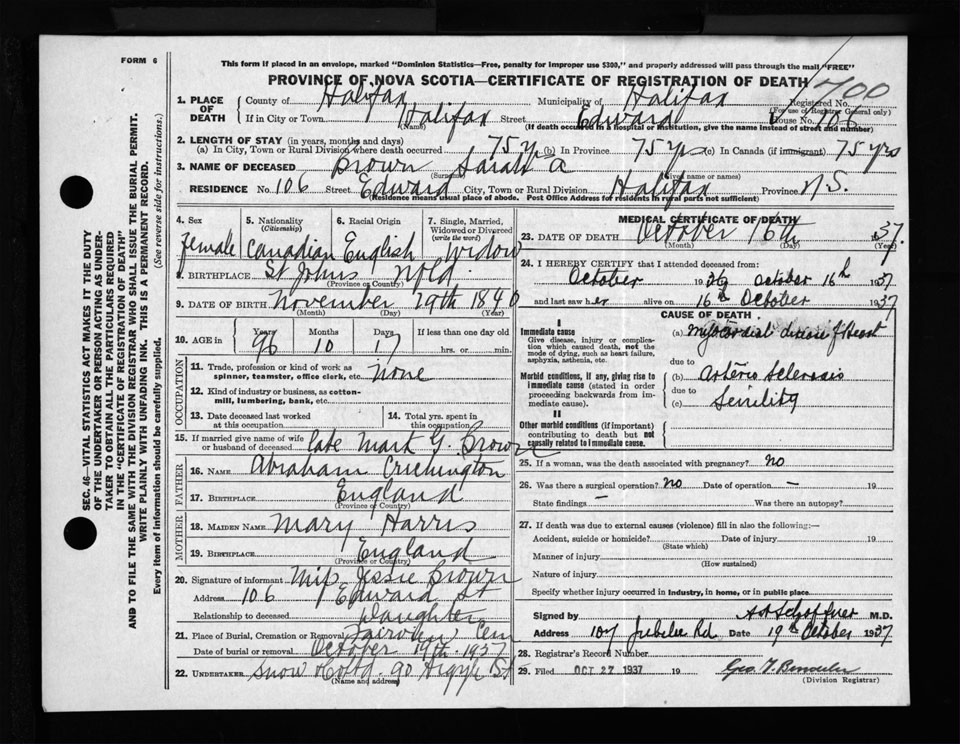 FORM 6
This form if placed in an envelope, marked "Dominion Statistics—Free, penalty for improper use $300," and properly addressed will pass through the mail "FREE"
PROVINCE OF NOVA SCOTIA—CERTIFICATE OF REGISTRATION OF DEATH
700
1. PLACE OF DEATH
County of Halifax Municipality of Halifax Registered No.
(For use of Registrar General only)
If in City or Town Halifax Street Edward House No. 106
(Name) (If death occurred in a hospital or institution, give the name instead of street and number)
2. LENGTH OF STAY (in years, months and days)
(a) In City, Town or Rural Division where death occurred 75 yrs (b) In Province 75 yrs (c) In Canada (if immigrant) 75 yrs
3. NAME OF DECEASED Brown Sarah A
(Surname) (Given name or names)
RESIDENCE No. 106 Street Edward City, Town or Rural Division Halifax Province N.S.
(Residence means usual place of abode. Post Office Address for residents in rural parts not sufficient)
4. Sex Female
5. Nationality (Citizenship) Canadian
6. Racial Origin English
7. Single, Married, Widowed or Divorced (write the word) Widow
8. BIRTHPLACE St Johns Nfld
(Province or Country)
9. DATE OF BIRTH November 29th 1840
(Month) (Day) (Year)
10. AGE in Years 96 Months 10 Days 17 If less than one day old hrs. or min.
OCCUPATION
11. Trade, profession or kind of work as spinner, teamster, office clerk, etc. None
12. Kind of industry or business, as cotton-mill, lumbering, bank, etc.
13. Date deceased last worked at this occupation
14. Total yrs. spent in this occupation
15. If married give name of wife or husband of deceased late Mark G. Brown
FATHER
16. NAME Abraham Crichington
17. BIRTHPLACE England
(Province or Country)
MOTHER
18. MAIDEN NAME Mary Harris
19. BIRTHPLACE England
(Province or Country)
20. Signature of informant Miss Jessie Brown
Address 106 Edward St
Relationship to deceased Daughter
21. Place of Burial, Cremation or Removal Fairview Cem
Date of burial or removal October 19th 1937
22. UNDERTAKER Snow & Co Ltd. 90 Argyle St
(Name and address)
MEDICAL CERTIFICATE OF DEATH
23. DATE OF DEATH October 16th 1937
(Month) (Day) (Year)
24. I HEREBY CERTIFY that I attended deceased from:
October 1936 to October 16th 1937
and last saw her alive on 16th October 1937
CAUSE OF DEATH
I
Immediate cause
Give disease, injury or complication which caused death, not the mode of dying, such as heart failure, asphyxia, asthenia, etc.
(a) Myocardial disease of Heart
due to
Morbid conditions, if any, giving rise to immediate cause (stated in order proceeding backwards from immediate cause).
(b) Arterio Sclerosis
due to
(c) Senility
II
Other morbid conditions (if important) contributing to death but not causally related to immediate cause.
25. If a woman, was the death associated with pregnancy? No
26. Was there a surgical operation? No Date of operation — 19
State findings — Was there an autopsy?
27. If death was due to external causes (violence) fill in also the following:—
Accident, suicide or homicide? Date of injury 19
(State which)
Manner of injury
(How sustained)
Nature of injury
Specify whether injury occurred in industry, in home, or in public place.
Signed by M.D.
Address 107 Jubilee Rd Date 19th October 1937
28. Registrar's Record Number
29. Filed OCT 27 1937 19 Geo.
(Division Registrar)
SEC. 46—VITAL STATISTICS ACT MAKES IT THE DUTY
OF THE UNDERTAKER OR PERSON ACTING AS UNDER-
TAKER TO OBTAIN ALL THE PARTICULARS REQUIRED
IN THE "CERTIFICATE OF REGISTRATION OF DEATH"
AND TO FILE THE SAME WITH THE DIVISION REGISTRAR WHO SHALL ISSUE THE BURIAL PERMIT.
WRITE PLAINLY WITH UNFADING INK. THIS IS A PERMANENT RECORD.
Every item of information should be carefully supplied. (See reverse side for instructions.)